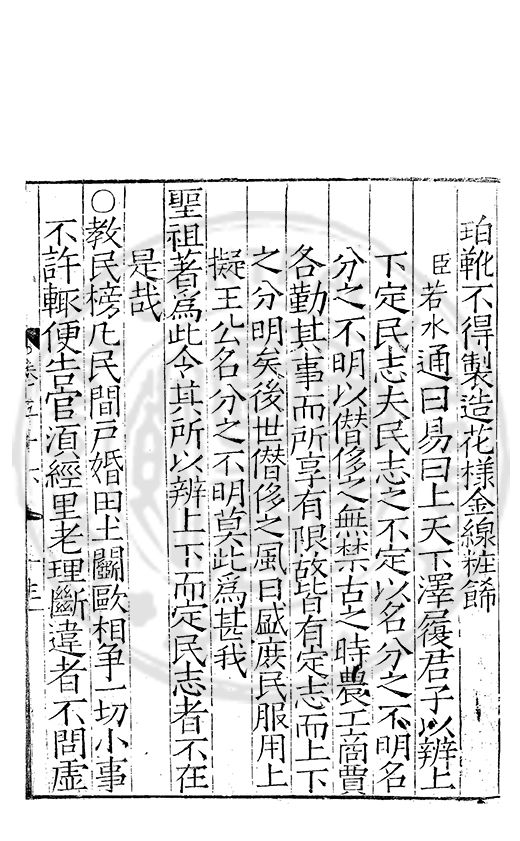 珀靴不得製造花樣金線粧餙
臣若水通曰易曰上天下澤履君子以辨上
下定民志夫民志之不定以名分之不明名
分之不明以僭侈之無禁古之時農工商賈
各勤其事而所享有限故皆有定志而上下
之分明矣後世僭侈之風日盛庶民服用上
擬王公名分之不明莫此爲甚我
聖祖著爲此令其所以辨上下而定民志者不在
是哉
○教民榜凡民間戸婚田土鬬毆相爭一切小事
不許輒便告官湏經里老理斷違者不問虚
卷五十六